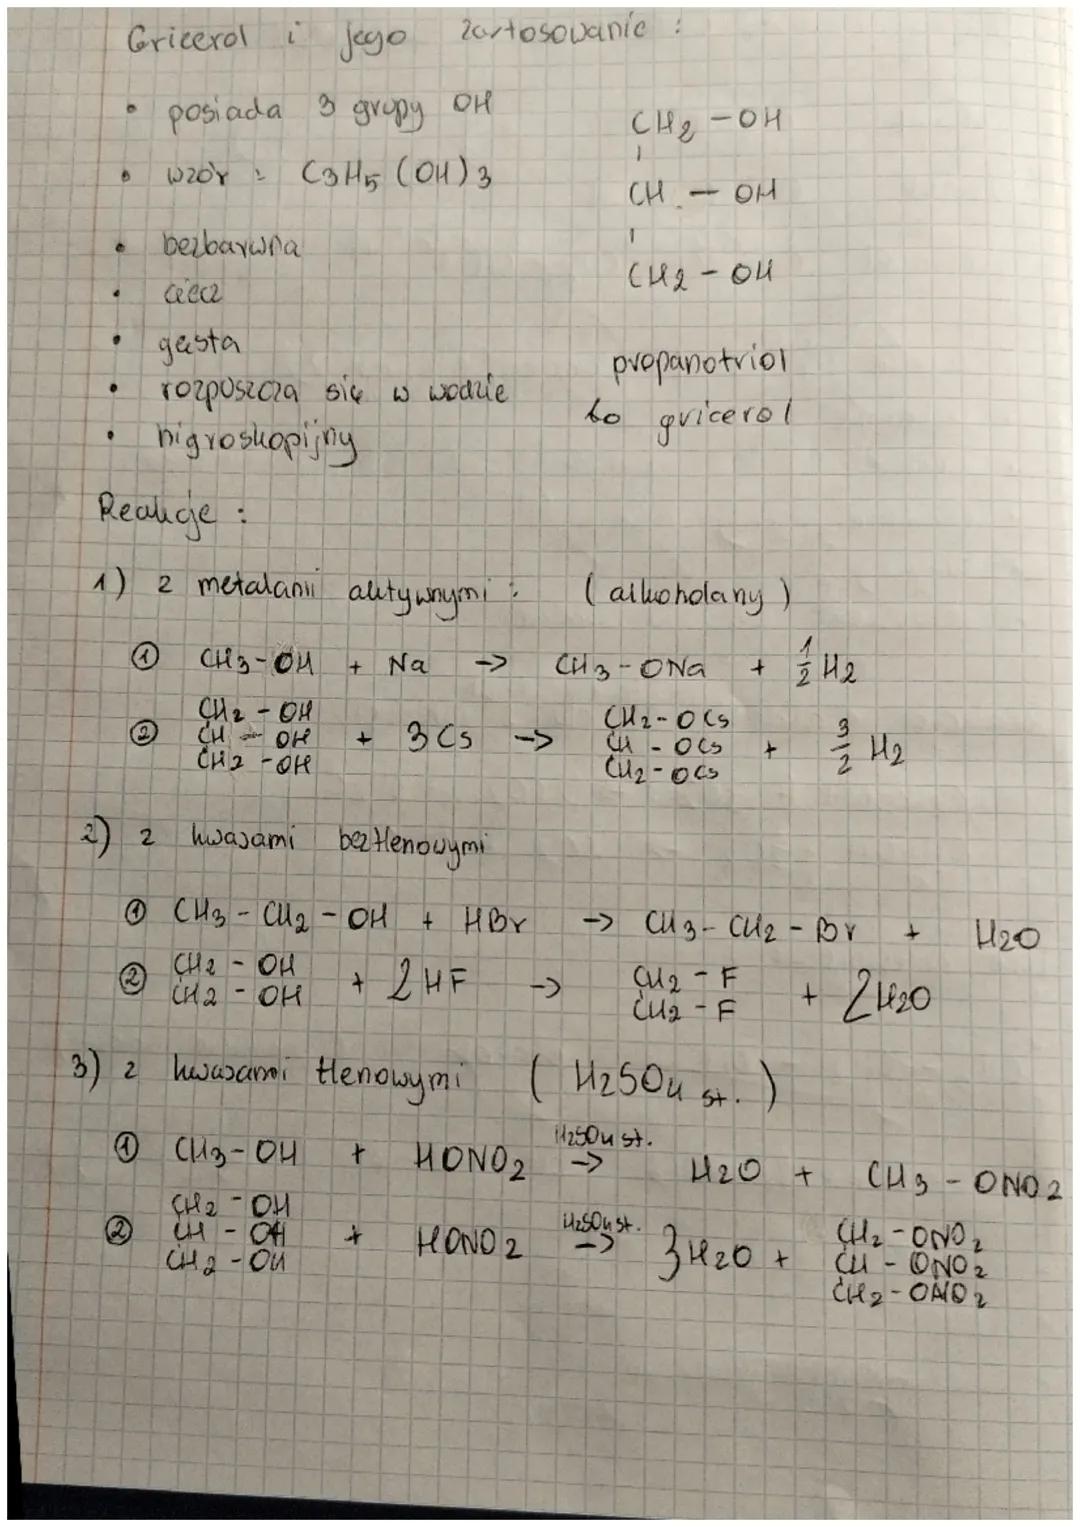 Gricerol i jego zastosowanie :
• posiada 3 grupy OH
• wzór : C3H5(OH)3
CH2 - OH
CH - OH
CH2 - OH
• bezbarwna
• ciecz
• gęsta
• rozpuszcza się w wodzie
• higroskopijny
propanotriol
to gricerol
Reakcje :
1) z metalami aktywnymi : (alkoholany)
① CH3-OH + Na -> CH3-ONa + 1/2 H2
② CH2-OH
CH-OH
CH2-OH
+ 3Cs ->
CH2-OCs
CH-OCs
CH2-OCs
+ 3/2 H2
2) z kwasami beztlenowymi
① CH3-CH2-OH + HBr -> CH3-CH2-Br + H2O
② CH2-OH
CH2-OH
+ 2HF ->
CH2-F
CH2-F
+ 2H2O
3) z kwasami tlenowymi (H2SO4 st.)
① CH3-OH + HONO2 H2SO4 st. -> H2O + CH3-ONO2
② CH2-OH
CH-OH
CH2-OH
+ HONO2 H2SO4 st. -> 3H2O +
CH2-ONO2
CH-ONO2
CH2-ONO2